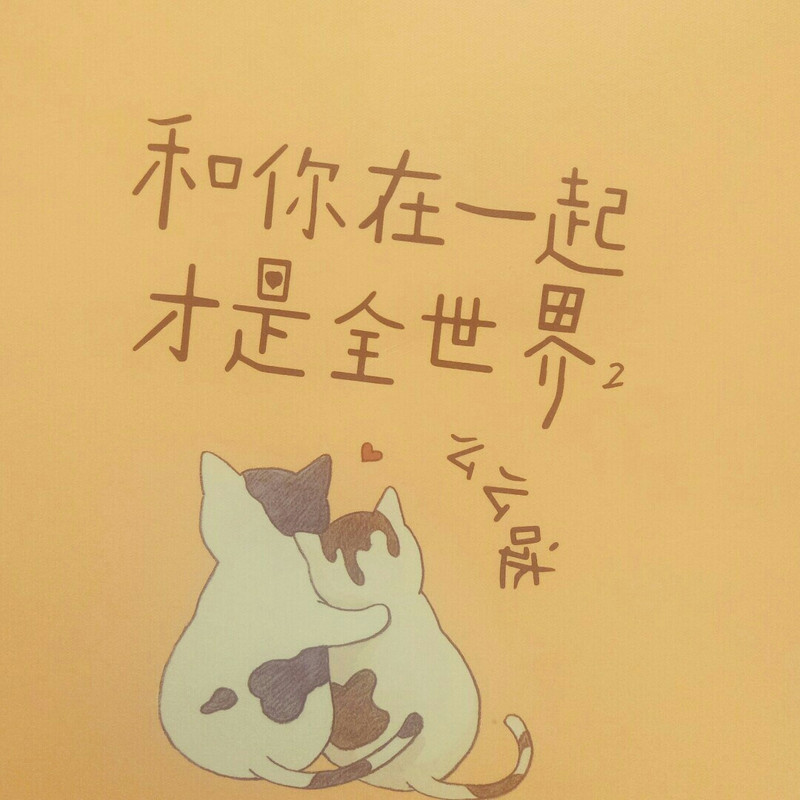 和你在一起
才是全世界2
么么哒